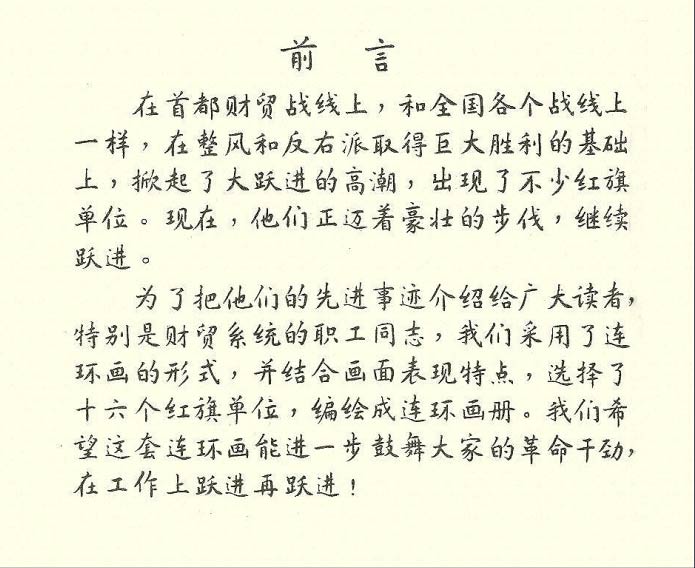 前言
在首都财贸战线上，和全国各个战线上
一样，在整风和反右派取得巨大胜利的基础
上，掀起了大跃进的高潮，出现了不少红旗
单位。现在，他们正迈着豪壮的步伐，继续
跃进。
为了把他们的先进事迹介绍给广大读者，
特别是财贸系统的职工同志，我们采用了连
环画的形式，并结合画面表现特点，选择了
十六个红旗单位，编绘成连环画册。我们希
望这套连环画能进一步鼓舞大家的革命干劲，
在工作上跃进再跃进！